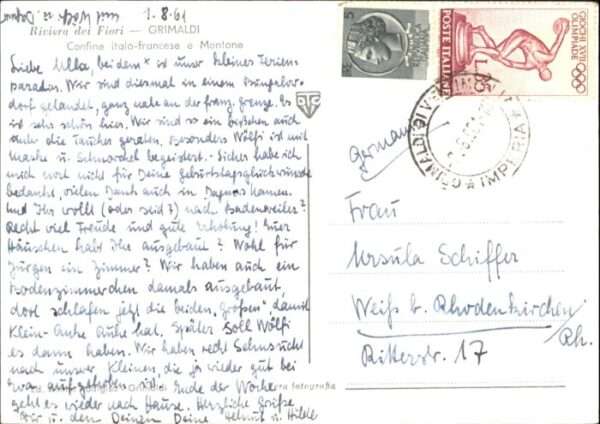 1.-8.61
Riviera dei Fiori — GRIMALDI
Confine italo-francese e Mentone
Liebe Ulla, beidem ist unser kleines Ferien-
paradies. Wir sind diesmal in einem Bungalow-
dorf gelandet, ganz nahe an der franz. Grenze. Es
ist sehr schön hier. Wir sind so ein bißchen auch
unter die Taucher geraten. Besonders Wölfi ist mit
Maske u. Schnorchel begeistert. - Sicher habe ich
mich noch nicht für Deine Geburtstagsglückwünsche
bedankt, vielen Dank auch in Dagmars Namen.
Und Ihr wollt (oder seid?) nach Badenweiler?
Recht viel Freude und gute Erholung! Euer
Häuschen habt Ihr ausgebaut? Wohl für
Jürgen ein Zimmer? Wir haben auch ein
Bodenzimmerchen damals ausgebaut,
dort schlafen jetzt die beiden „Großen" damit
Klein-Anke Ruhe hat. Später soll Wölfi
es dann haben. Wir haben recht Sehnsucht
nach unserer Kleinen, die ja wieder gut bei
aufgehoben ist. Ende der Woche
geht es wieder nach Hause. Herzliche Grüße
Dir u. den Deinen Deine Helmut u. Hilde
5
POSTE ITALIANE
L. 15
GIOCHI XVII OLIMPIADE
GRIMALDI DI VE
IMPERIA
Germania
Frau
Ursula Schiffer
Weiß b. Rhodenkirchen/
Rh.
Ritterstr. 17
fotografia